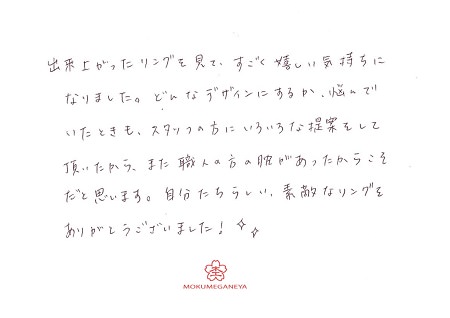 出来上がったリングを見て、すごく嬉しい気持ちに
なりました。どんなデザインにするか、悩んで
いたときも、スタッフの方にいろいろな提案をして
頂いたから、また職人の方の腕があったからこそ
だと思います。自分たちらしい、素敵なリングを
ありがとうございました!
MOKUMEGANEYA